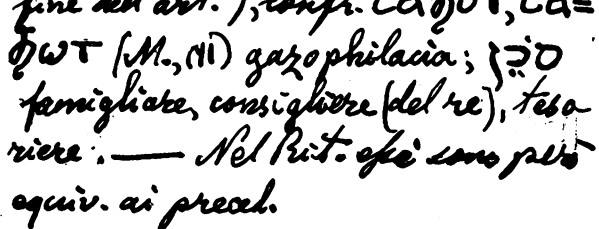 fine dell'art.), confr.
(M., gazophilacia; סֹכֵן
famigliare, consigliere (del re), teso
riere. — Nel Rit. sono però
equiv. ai preced.